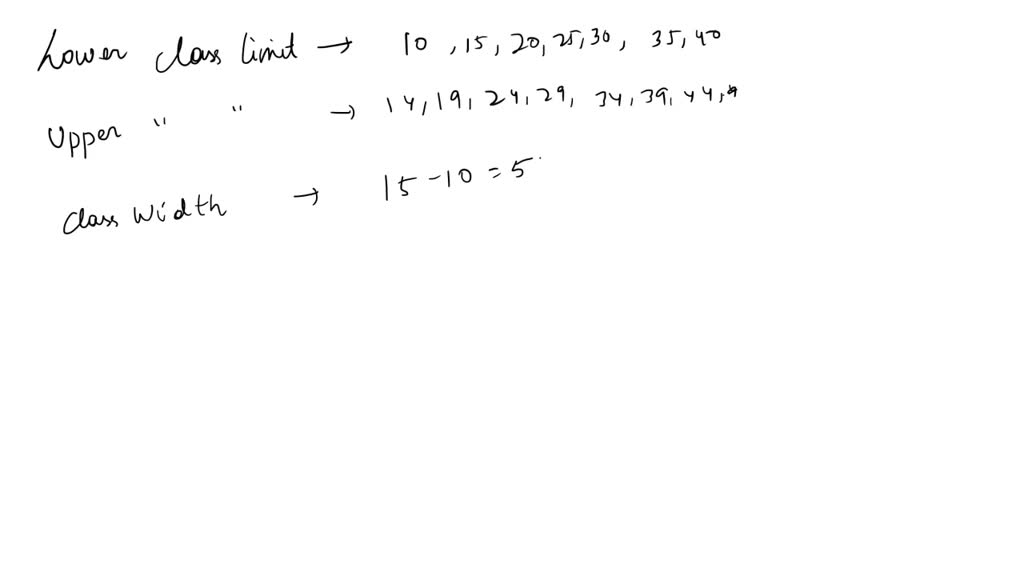 Lower class limit → 10, 15, 20, 25, 30, 35, 40
Upper " " → 14, 19, 24, 29, 34, 39, 44,
class width → 15 - 10 = 5